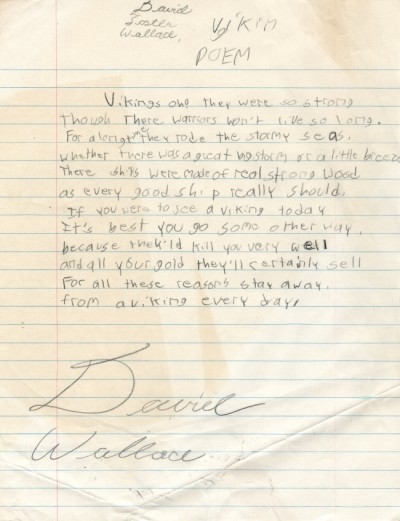 David
Foster
Wallace.
Viking
POEM
Vikings oh they were so strong
Though there warriors won't live so long.
For a long time they rode the stormy seas.
whether there was a great big storm or a little breeze
There ships were made of real strong wood
as every good ship really should.
If you were to see a viking today
It's best you go some other way,
because they'ld kill you very well
and all your gold they'll certainly sell
For all these reasons stay away.
from a viking every day.
David
Wallace